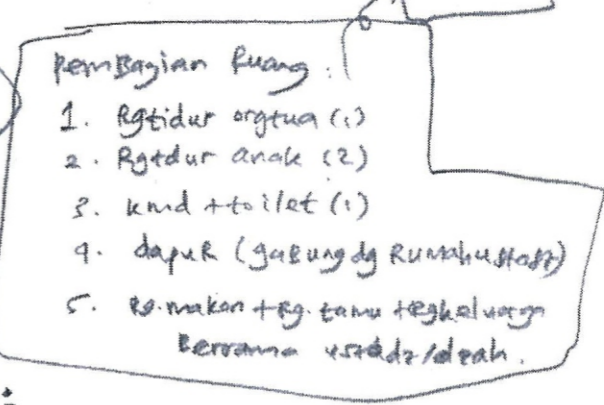 pemBagian Ruang :
1. Rgtidur orgtua (1)
2. Rgtdur anak (2)
3. kmd + toilet (1)
4. dapuR (gaBung dg Rumahustadz)
5. Rg.makan + Rg. tamu + rgkeluarga
Bersama ustadz/dzah.